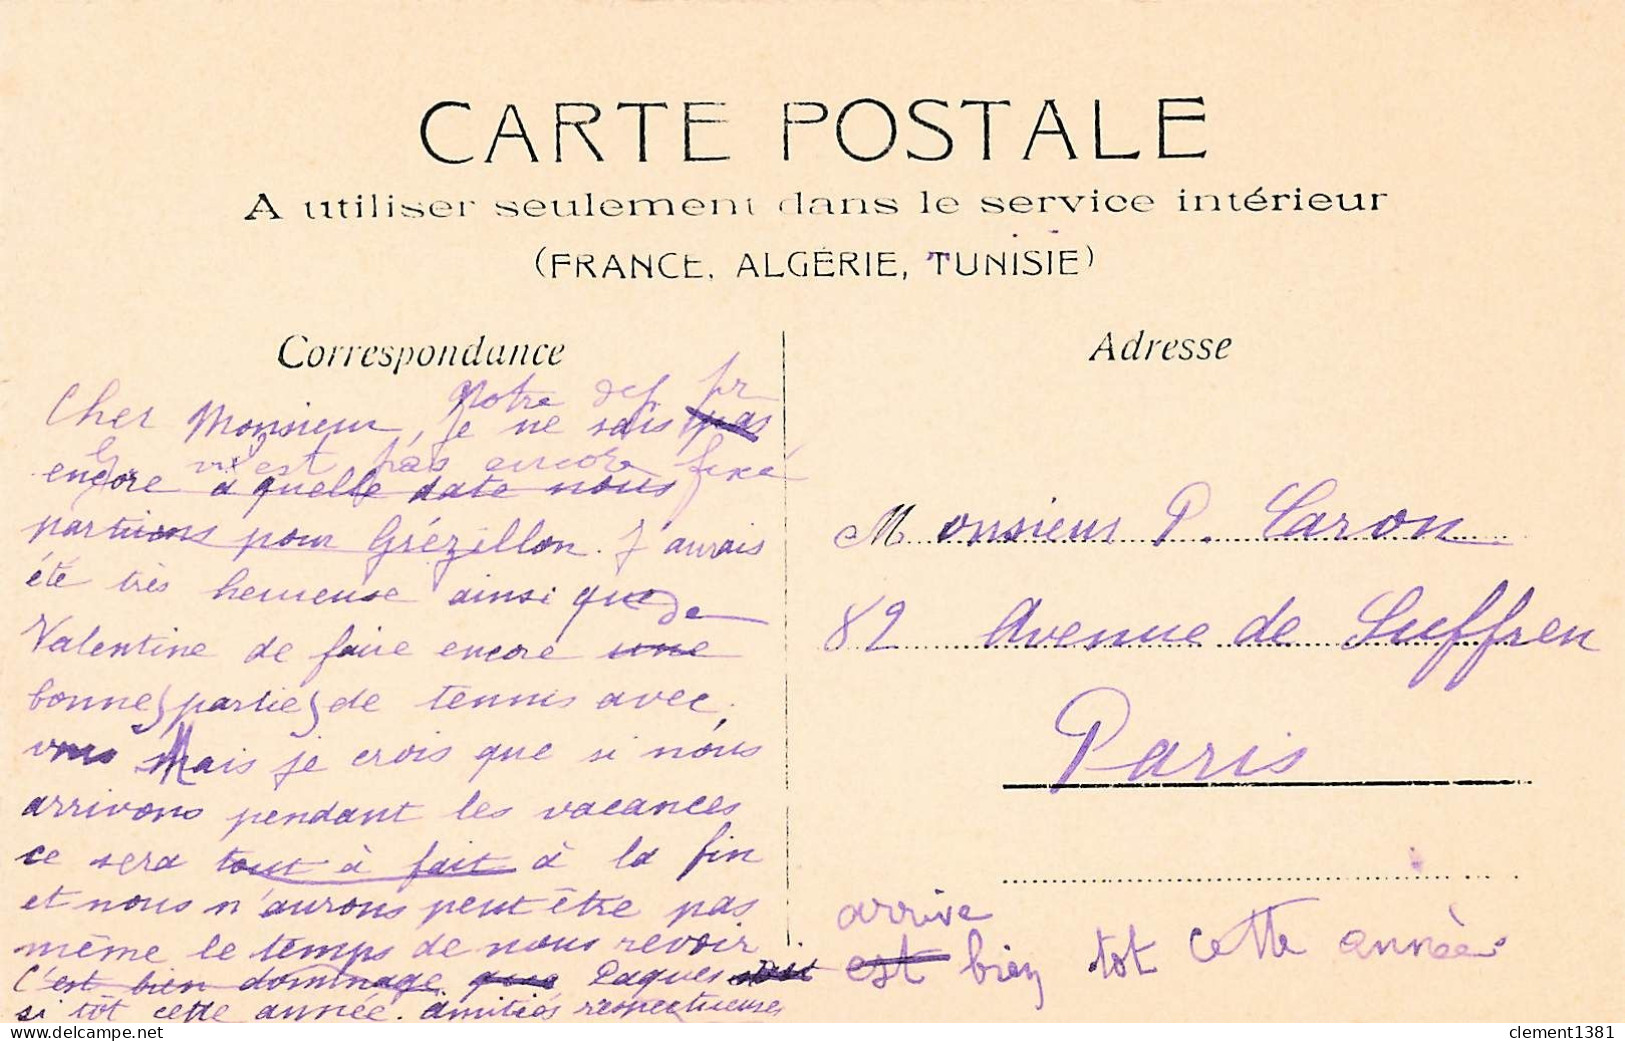 CARTE POSTALE
A utiliser seulement dans le service intérieur
(FRANCE, ALGÉRIE, TUNISIE)
Correspondance
Notre def pr
Cher Monsieur, Je ne sais pas
n'est pas encore fixé
encore à quelle date nous
partirions pour Grézillon. J'aurais
été très heureuse ainsi que de
Valentine de faire encore une
bonnes parties de tennis avec
vous Mais je crois que si nous
arrivons pendant les vacances
ce sera tout à fait à la fin
et nous n'aurons peut être pas
même le temps de nous revoir
C'est bien dommage que Paques soit
si tôt cette année. Amitiés respectueuses
Adresse
Monsieur P. Caron
82 Avenue de Suffren
Paris
arrive
est bien tot cette année
clement1381
www.delcampe.net